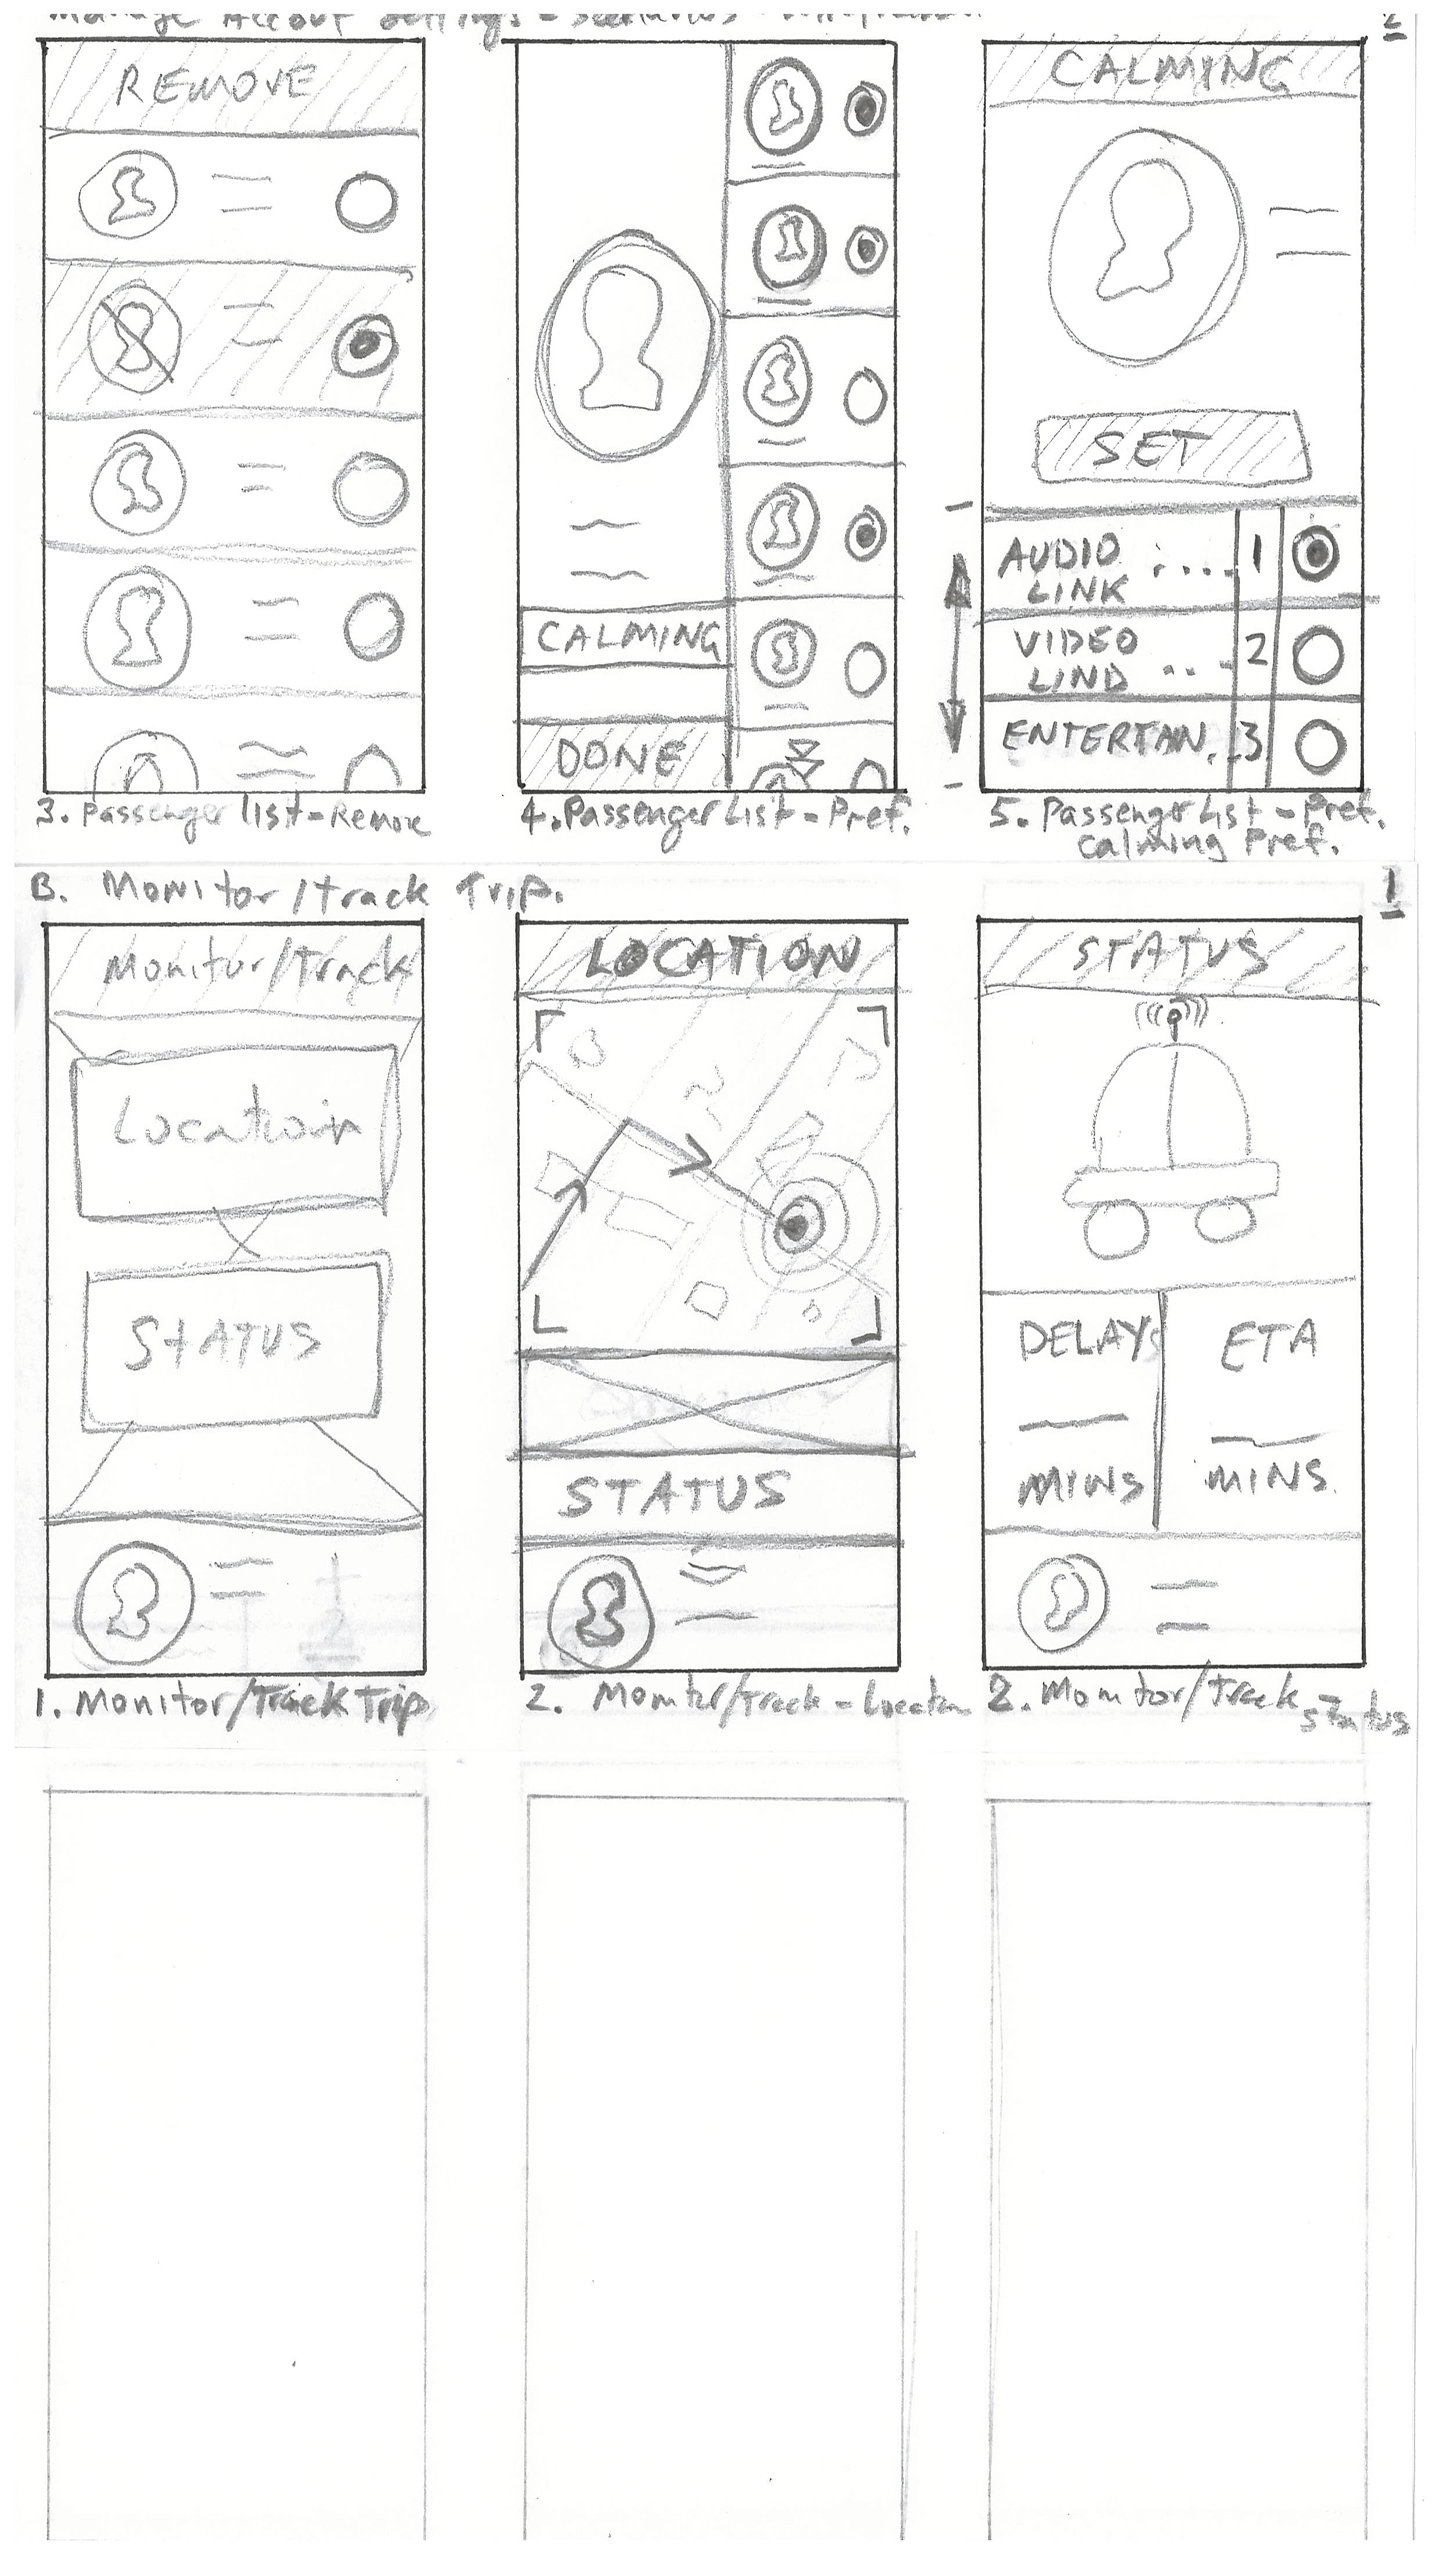 Manage Account Settings - Scenarios -
2
REMOVE
3. Passenger list - Remove
CALMING
DONE
4. Passenger List - Pref.
CALMING
SET
AUDIO .... 1
LINK
VIDEO
LIND ... 2
ENTERTAIN. .. 3
5. Passenger List - Pref.
Calming Pref.
B. Monitor/track Trip.
1
Monitor/Track
Location
STATUS
1. Monitor/Track Trip
LOCATION
STATUS
2. Monitor/Track - Location
STATUS
DELAYS
MINS
ETA
MINS.
2. Monitor/track -
status